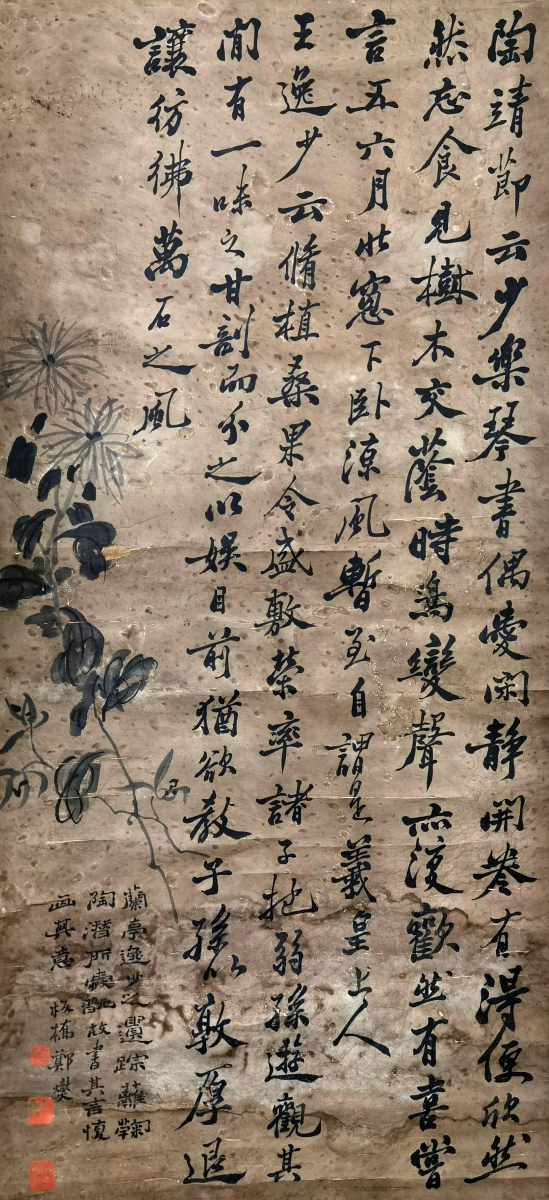 陶靖節云少樂琴書偶愛閑靜開卷有得便欣然
然忘食見樹木交蔭時鳥變聲亦復歡然有喜嘗
言五六月北窓下臥涼風暫至自謂是羲皇上人
王逸少云脩植桑果今盛敷榮率諸子抱弱孫遊觀其
間有一味之甘剖而分之以娛目前猶欲教子孫以敦厚退
讓彷彿萬石之風
蘭亭逸少之遺踪蘺菊
陶潛所癖玩故書其言復
畫其意 板橋鄭燮